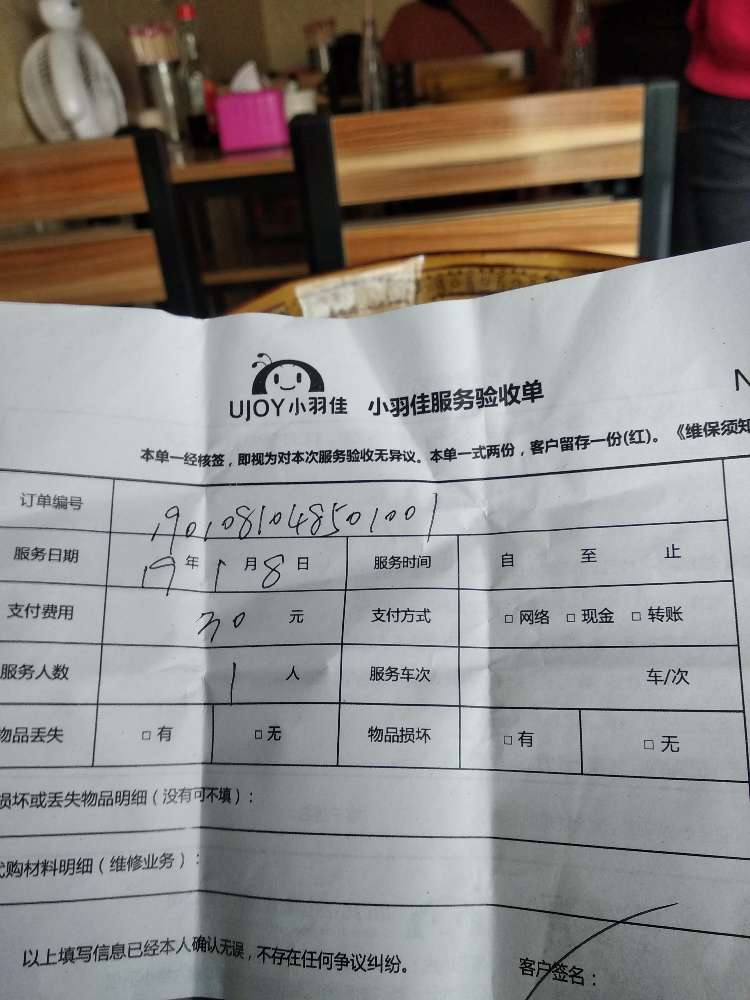 UJOY小羽佳 小羽佳服务验收单
本单一经核签，即视为对本次服务验收无异议。本单一式两份，客户留存一份(红)。《维保须知
订单编号 1901081048501001
服务日期 19年1月8日 服务时间 自 至 止
支付费用 30元 支付方式 □网络 □现金 □转账
服务人数 1人 服务车次 车/次
物品丢失 □有 □无 物品损坏 □有 □无
损坏或丢失物品明细（没有可不填）：
代购材料明细（维修业务）：
以上填写信息已经本人确认无误，不存在任何争议纠纷。
客户签名：